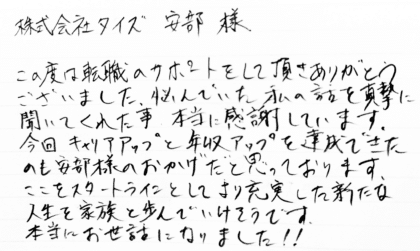 株式会社タイズ 安部 様
この度は転職のサポートをして頂きありがとう
ございました。悩んでいた私の話を真摯に
聞いてくれた事 本当に感謝しています。
今回 キャリアアップと年収アップを達成できた
のも安部様のおかげだと思っております。
ここをスタートラインとしてより充実した新たな
人生を家族と歩んでいけそうです。
本当にお世話になりました!!